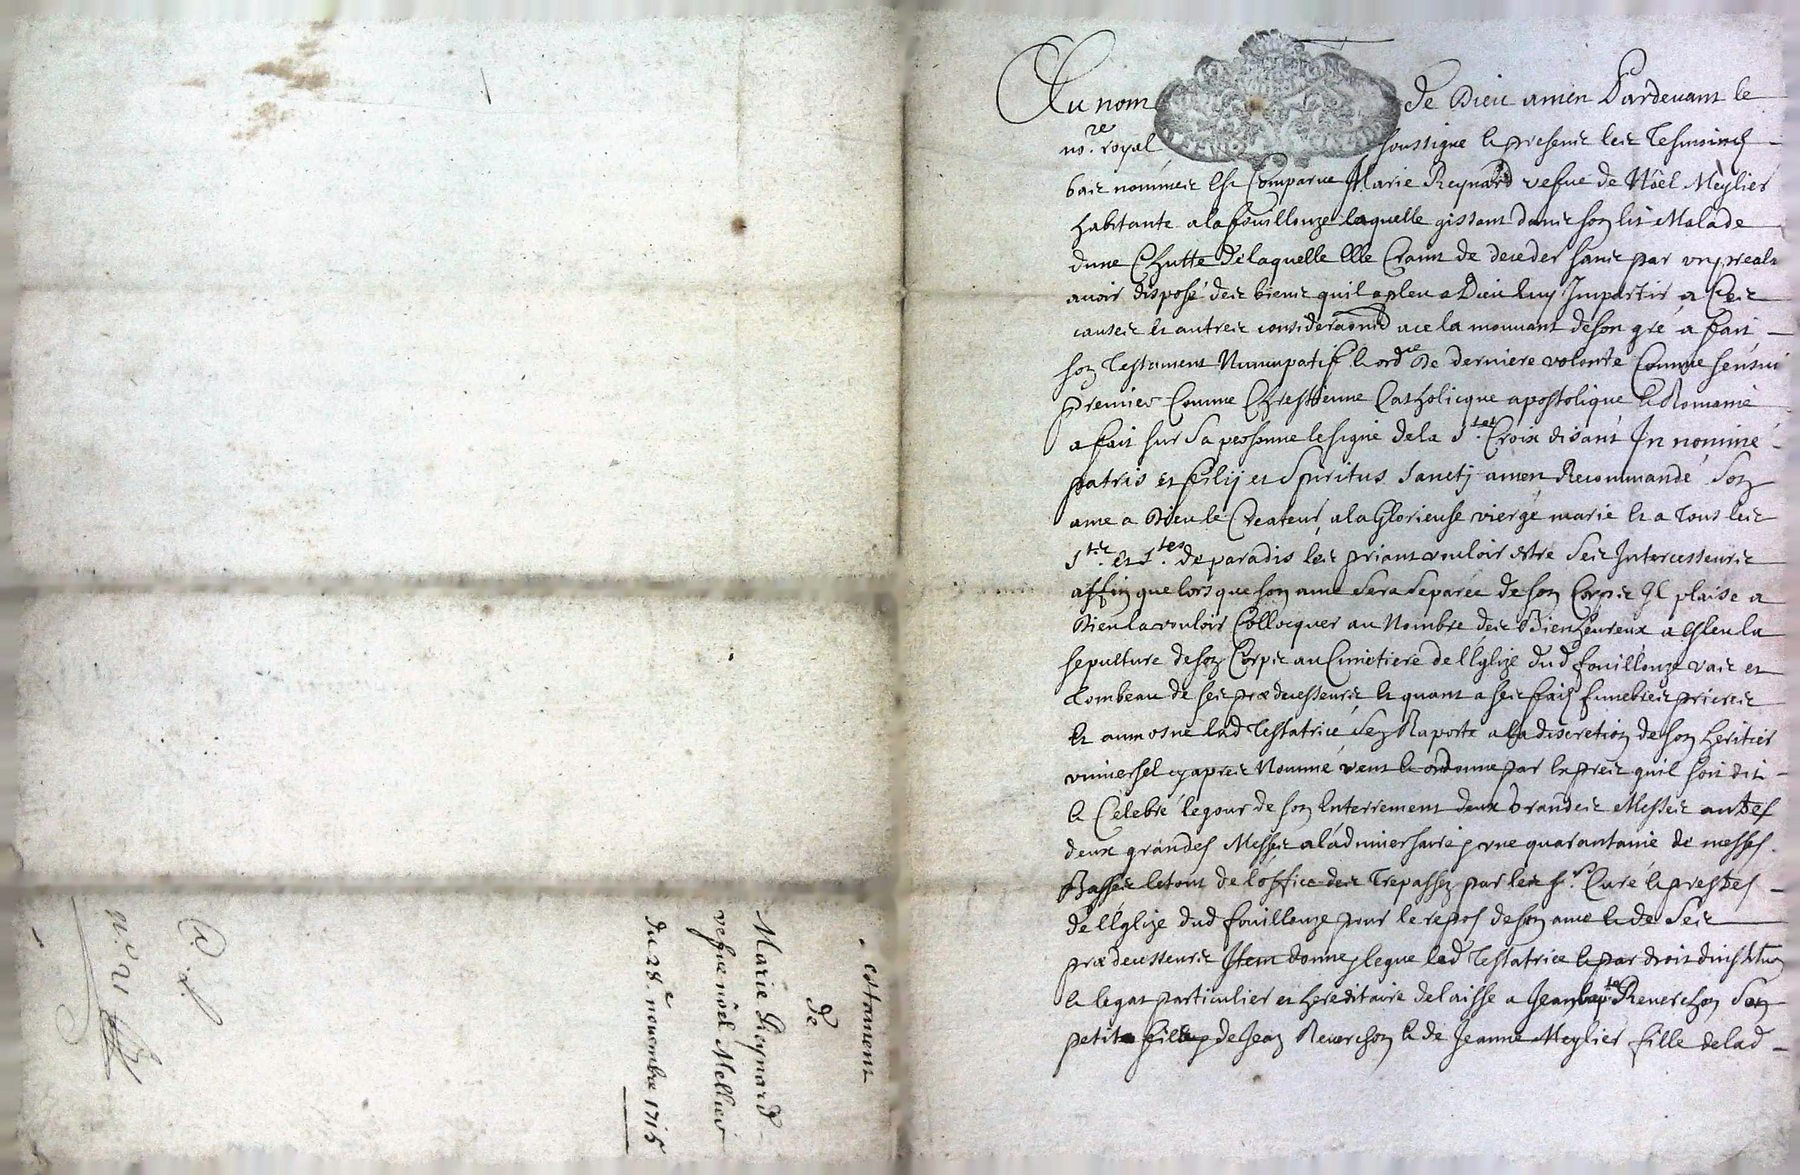 Testament
de
Marie Reynard
vefue nöel Mellier
du 28.e nouembre 1715
n.° 21
Au nom de Dieu amen Pardeuant le
no.re royal soussigne & presents les Tesmoings
bas nommes Est Comparue Marie Reynard vefue de Nöel Meylier
habitante a la fouillouze laquelle gissant dans son lit Malade
dune Chutte de laquelle Elle Craint de deceder sans par un preala
auoir disposé des biens quil a pleu a Dieu luy Impartir a Ces
causes et autres consideraons a ce la mouuant de son gré a fait
son Testament Nuncupatif & ord.ce de derniere volonté Comme sensui
premier Comme Chrestienne Catholicque apostolique & Romaine
a fait sur sa personne le signe de la s.te Croix disant In nomine
patris et filij et Spiritus Sanctj amen Recommandé son
ame a Dieu le Createur a la Glorieuse vierge marie & a tous les
s.ts et s.tes de paradis les priant vouloir estre ses Intercesseurs
affin que lors que son ame sera separée de son Corps Il plaise a
Dieu la vouloir Collocquer au Nombre des Bienheureux a Esleu la
sepulture de son Corps au Cimetiere de lEglize dud fouillouze vas et
Tombeau de ses prædecesseurs & quant a ses frais funebres prieres
& aumosne lad Testatrice sen Raporte a la discretion de son heritier
vniuersel cy apres Nommé veut & ordonne par Expres quil soit dit
& Celebré le jour de son Enterrement deux Grandes Messes autres
deux grandes Messes a ladniuersaire & vne quarantaine de messes
Basses le tout de loffice des Trepassez par les s.rs Curé & prestres
de lEglize dud fouillouze pour le repos de son ame & de ses
prædecesseurs Item donne legue lad Testatrice & par droit dinstitution
& legat particulier et hereditaire delaisse a Jean bap.te Reuerchon son
petit fils de Jean Reuerchon & de Jeanne Meylier fille de lad